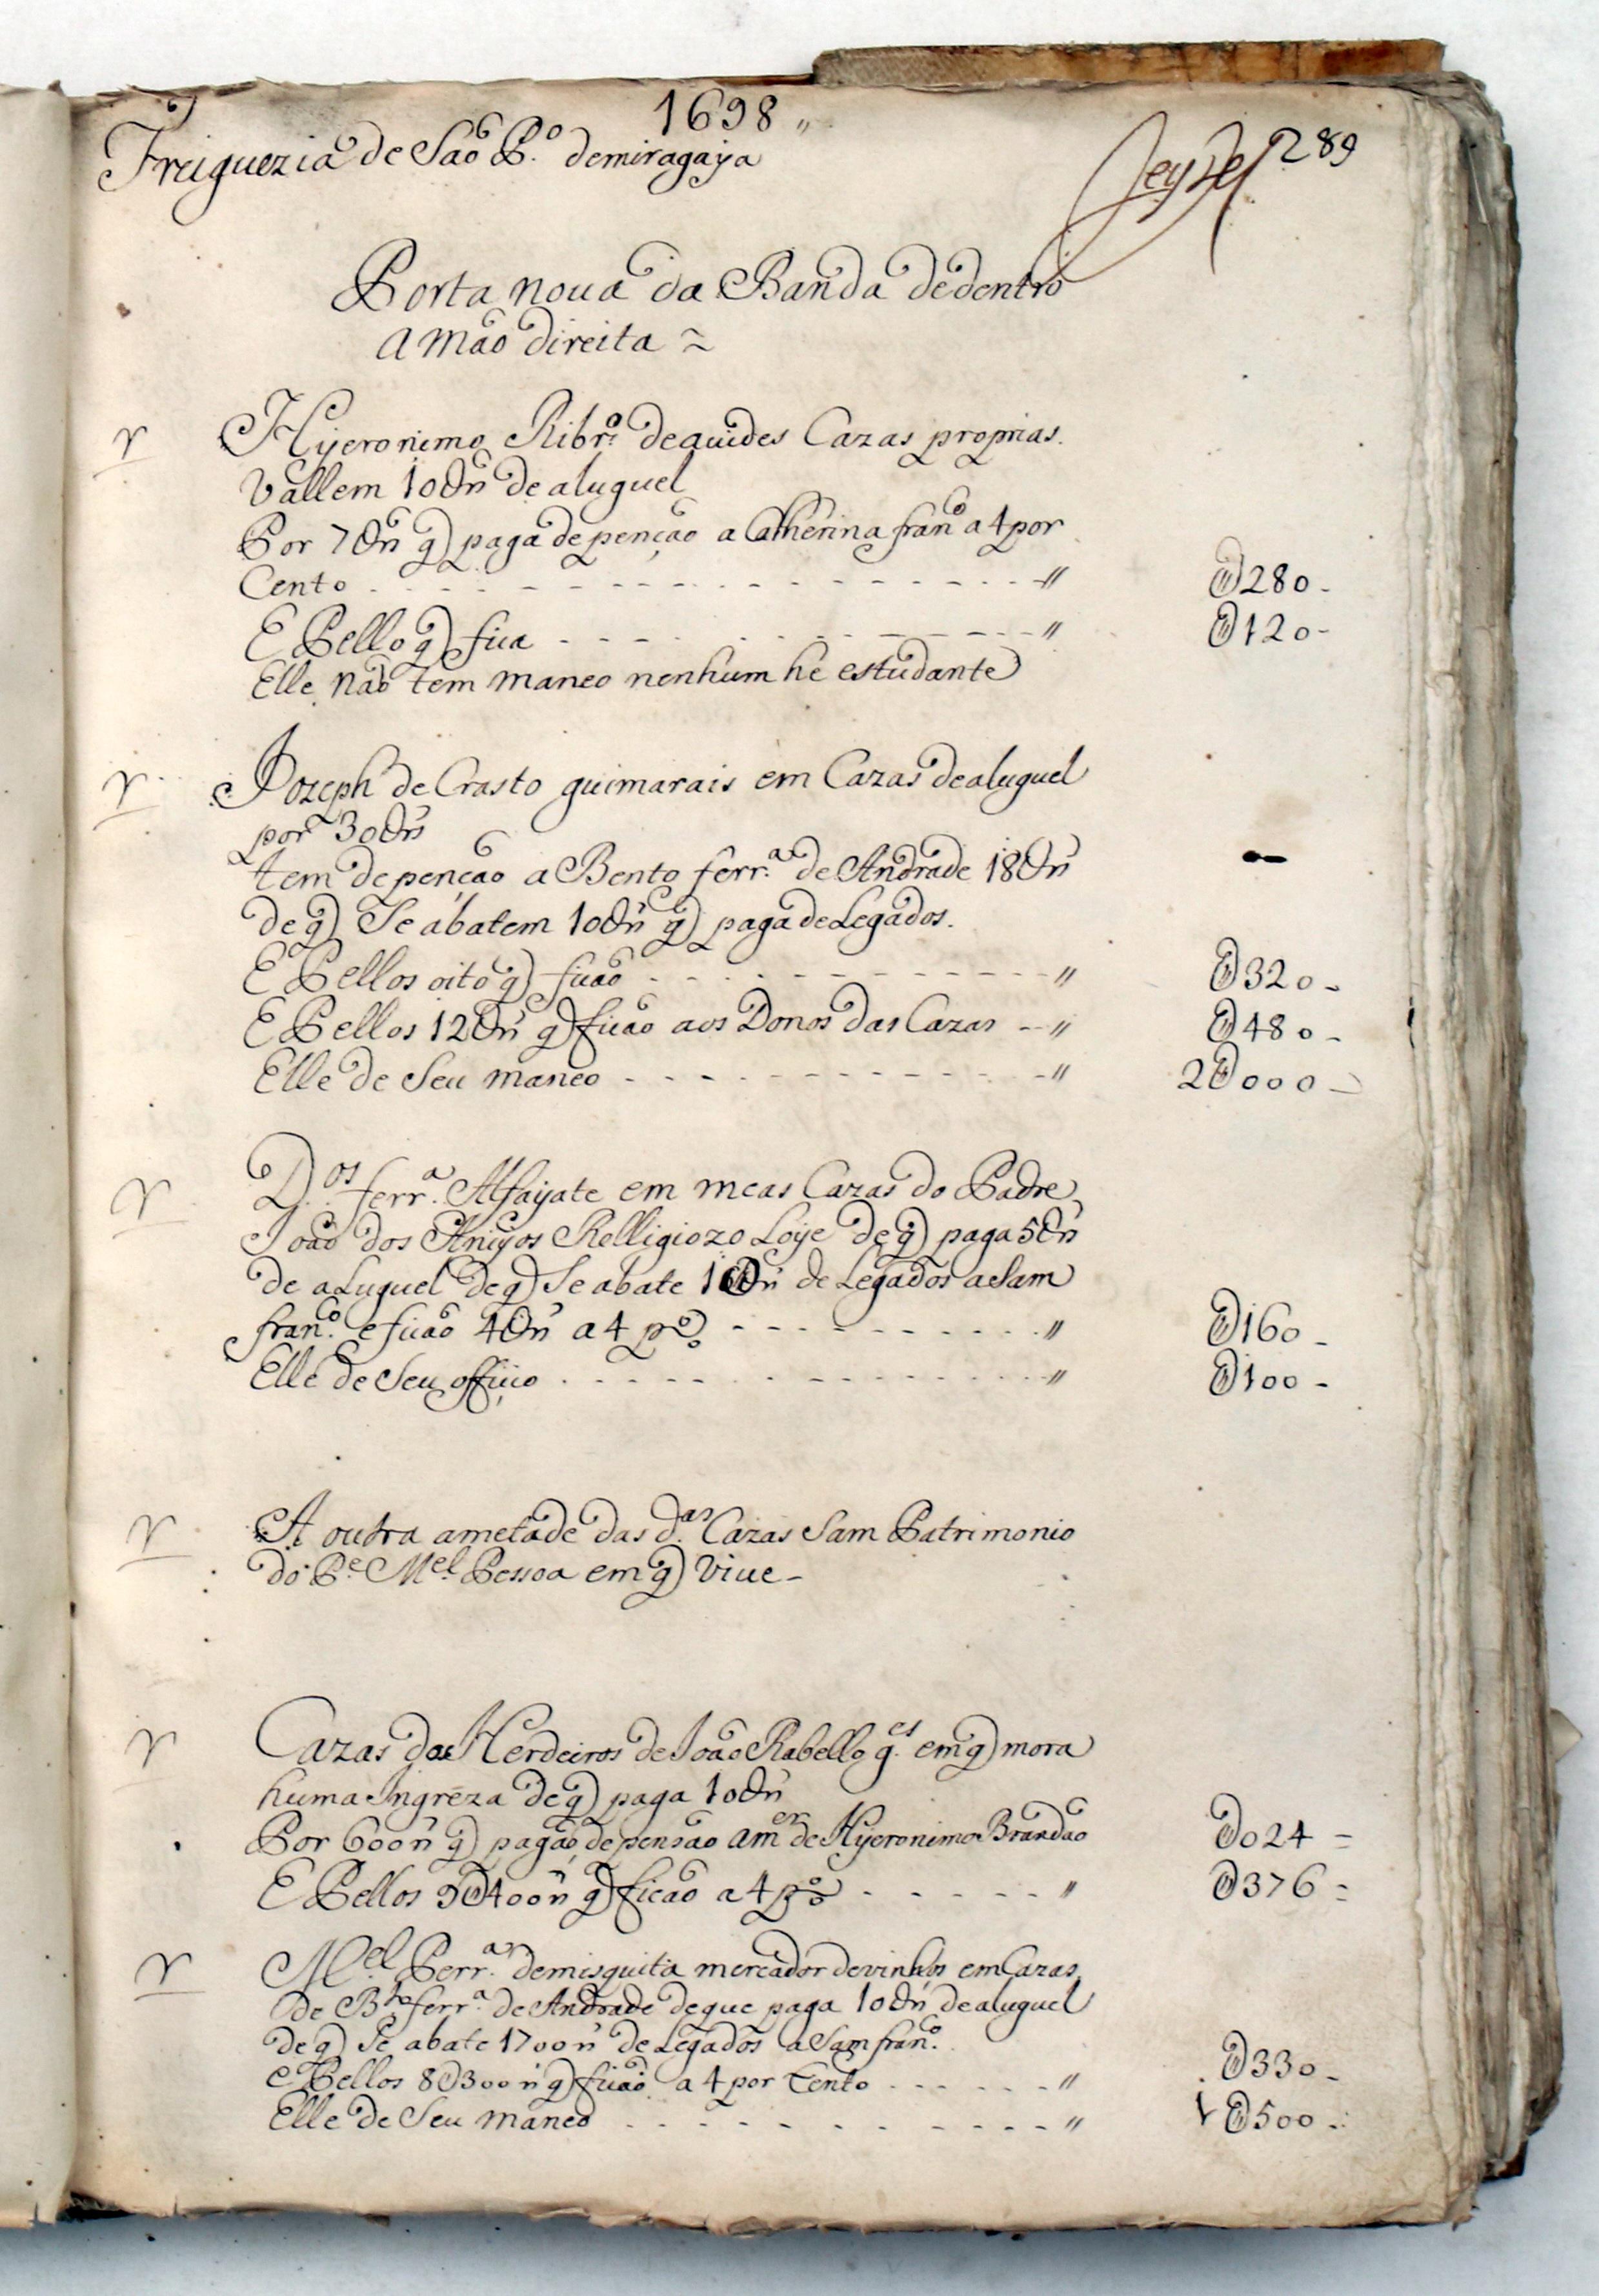 1698
Freiguezia de São P.º demiragaya
289
Porta noua da Banda dedentro
A mão direita
Hyeronimo Ribr.º deauides Cazas proprias.
Vallem 10U rs de aluguel
Por 7U rs q paga de penção a Catherina fran.ca a 4 por
Cento - - - - - - - - - - // U280 -
E Pello q fica - - - - - - - - // U120 -
Elle não tem maneo nenhum he estudante
Jozeph de Crasto guimarais em Cazas de aluguel
por 30U rs
tem de penção a Bento ferr.a de Andrade 18U rs
de q Se abatem 10U rs q paga de Legados.
E Pellos oito q ficão - - - - - - - - // U320 -
E Pellos 12U rs q ficão aos Donos das Cazas - // U480 -
Elle de Seu maneo - - - - - - - - // 2U000 -
D.os ferr.a Alfayate em meas Cazas do Padre
João dos Anjos Relligiozo Loye de q paga 5U rs
de aLuguel de q Se abate 1U rs de Legados a Sam
fran.co e ficão 4U rs a 4 p.º - - - - - - // U160 -
Elle de Seu officio - - - - - - - - // U100 -
A outra ametade das d.as Cazas Sam Patrimonio
do P.e M.el Pessoa em q Viue -
Cazas dos Herdeiros de João Rabello g.es em q mora
huma Ingreza de q paga 10U rs
Por 600 rs q pagão de pensão a m.er de Hyeronimo Brandão U024 =
E Pellos 9U400 rs q ficão a 4 p.º - - - - // U376 =
M.el Perr.a demisquita mercador de vinhos em Cazas
de B.to ferr.a de Andrade de que paga 10U rs de aluguel
de q Se abate 1700 rs de Legados a Sam fran.co
e Pellos 8U300 rs q ficão a 4 por Cento - - - - // U330 -
Elle de Seu maneo - - - - - - - - // 1U500 -